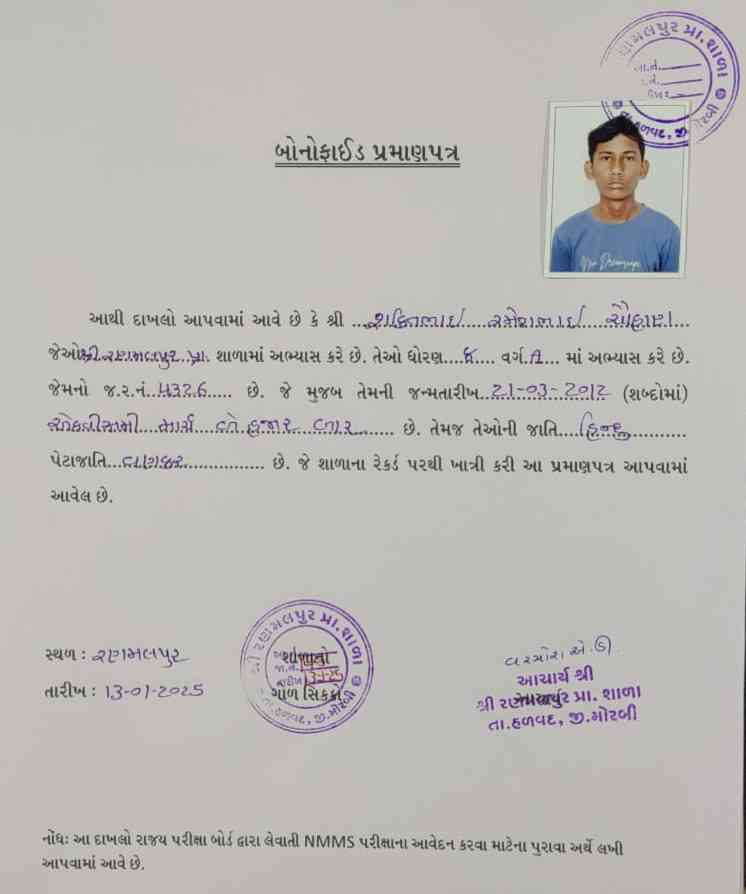 રણમલપુર પ્રા. શાળા
જા.નં.
તા. હળવદ, જી. મોરબી
બોનોફાઈડ પ્રમાણપત્ર
આથી દાખલો આપવામાં આવે છે કે શ્રી ...શક્તિભાઈ.....રમેશભાઈ.....ચૌહાણ...
જેઓ શ્રી રણમલપુર પ્રા. શાળામાં અભ્યાસ કરે છે. તેઓ ધોરણ....૮.... વર્ગ.A... માં અભ્યાસ કરે છે.
જેમનો જ.ર.નં..5326..... છે. જે મુજબ તેમની જન્મતારીખ..21-03-2012 (શબ્દોમાં)
એકવીસમી....માર્ચ....બે હજાર....બાર....... છે. તેમજ તેઓની જાતિ....હિન્દુ...........
પેટાજાતિ...વણકર................ છે. જે શાળાના રેકર્ડ પરથી ખાત્રી કરી આ પ્રમાણપત્ર આપવામાં
આવેલ છે.
સ્થળ : રણમલપુર
તારીખ : 13-01-2025
શ્રી રણમલપુર પ્રા. શાળા
શાળાનો
જા.નં.
તારીખ 13-1-25
ગોળ સિક્કો
તા. હળવદ, જી. મોરબી
વરમોરા એ. ડી.
આચાર્ય શ્રી
શ્રી રણમલપુર પ્રા. શાળા
તા.હળવદ, જી.મોરબી
નોંધઃ આ દાખલો રાજય પરીક્ષા બોર્ડ દ્વારા લેવાતી NMMS પરીક્ષાના આવેદન કરવા માટેના પુરાવા અર્થે લખી
આપવામાં આવે છે.